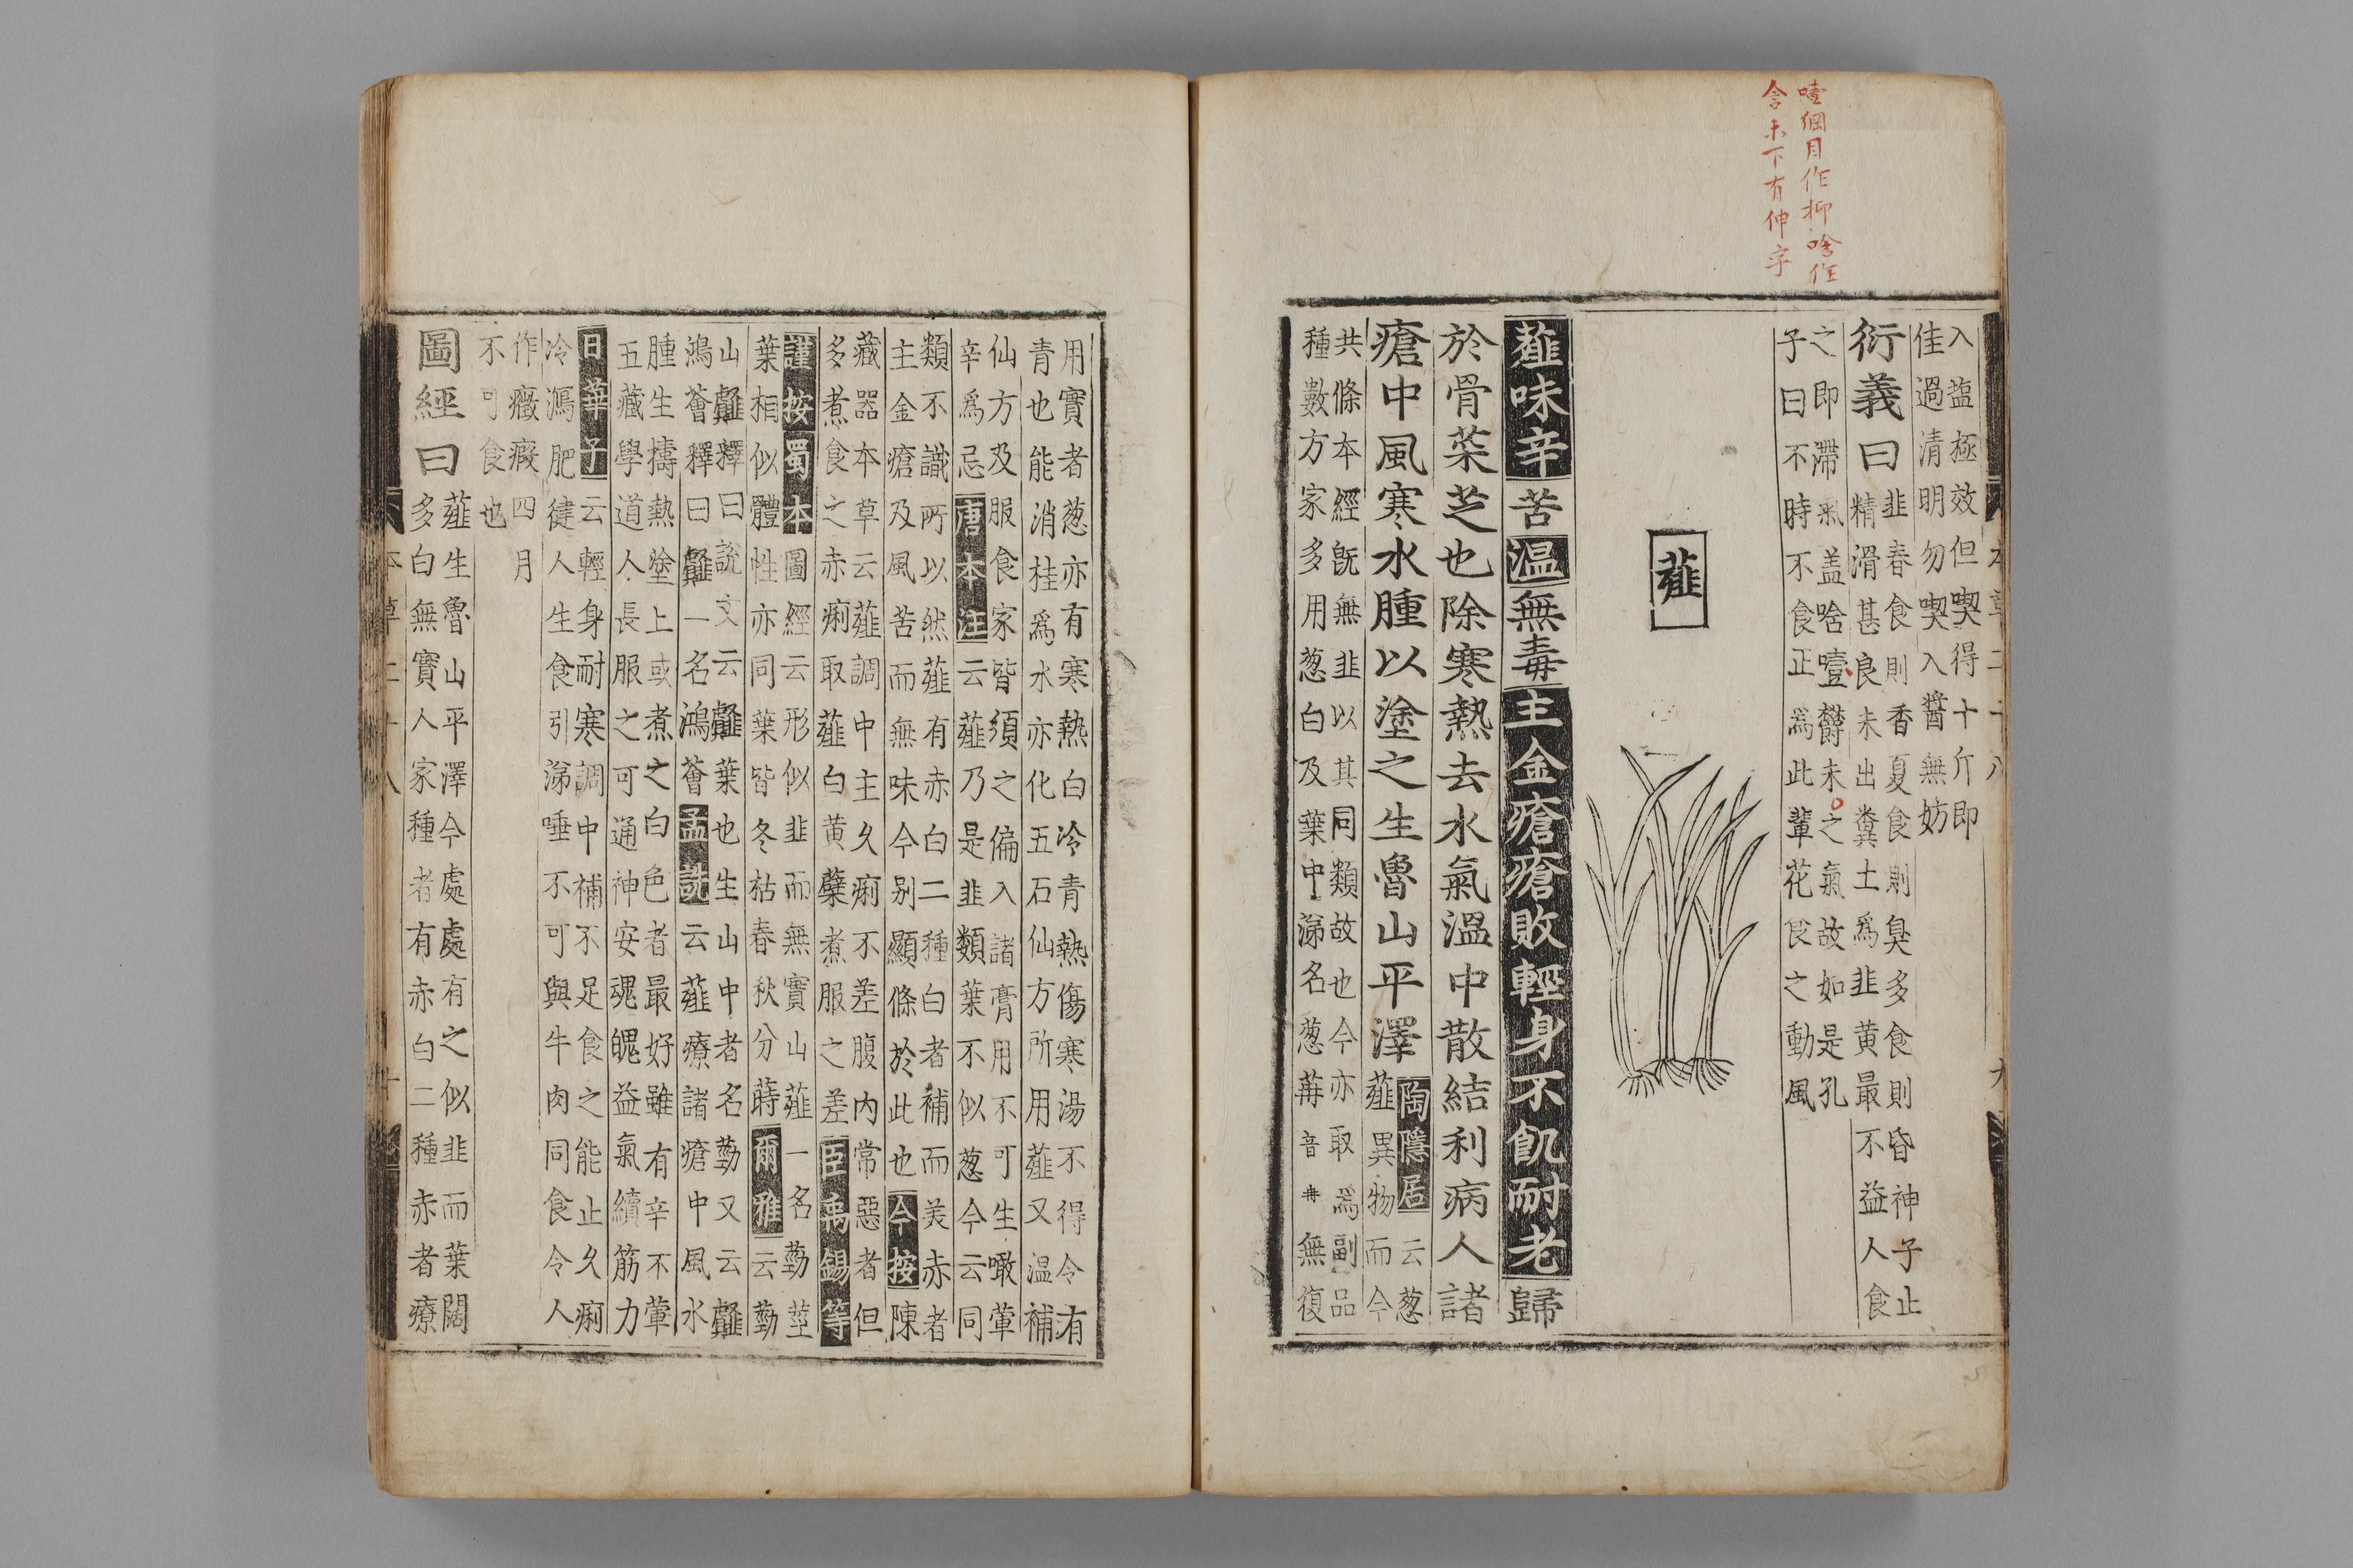 嚏綱目作抑啥作
含未下有伸字
入塩極效但喫得十斤即
佳過清明勿喫入醬無妨
衍義曰
韭春食則香夏食則臭多食則昏神子止
精滑甚良未出糞土爲韭黄最不益人食
之即滯氣盖啥噎欝未之氣故如是孔
子曰不時不食正爲此輩花食之動風
薤
薤味辛苦温無毒主金瘡瘡敗輕身不飢耐老歸
於骨菜芝也除寒熱去水氣溫中散結利病人諸
瘡中風寒水腫以塗之生魯山平澤
陶隱居云葱
薤異物而今
共條本經旣無韭以其同類故也今亦取爲副品
種數方家多用葱白及葉中涕名葱苒音冉無復
用實者葱亦有寒熱白冷青熱傷寒湯不得令有
青也能消桂爲水亦化五石仙方所用薤又温補
仙方及服食家皆須之偏入諸膏用不可生噉葷
辛爲忌唐本注云薤乃是韭類葉不似葱今云同
類不識所以然薤有赤白二種白者補而美赤者
主金瘡及風苦而無味今别顯條於此也今按陳
藏器本草云薤調中主久痢不差腹内常惡者但
多煮食之赤痢取薤白黄蘗煮服之差臣禹錫等
謹按蜀本圖經云形似韭而無實山薤一名勤莖
葉相似體性亦同葉皆冬枯春秋分蒔爾雅云勤
山䪥釋曰說文云䪥葉也生山中者名勤又云䪥
鴻薈釋曰䪥一名鴻薈孟詵云薤療諸瘡中風水
腫生擣熱塗上或煮之白色者最好雖有辛不葷
五藏學道人長服之可通神安魂魄益氣續筋力
日華子云輕身耐寒調中補不足食之能止久痢
冷瀉肥健人生食引涕唾不可與牛肉同食令人
作癥瘕四月
不可食也
圖經曰
薤生魯山平澤今處處有之似韭而葉闊
多白無實人家種者有赤白二種赤者療